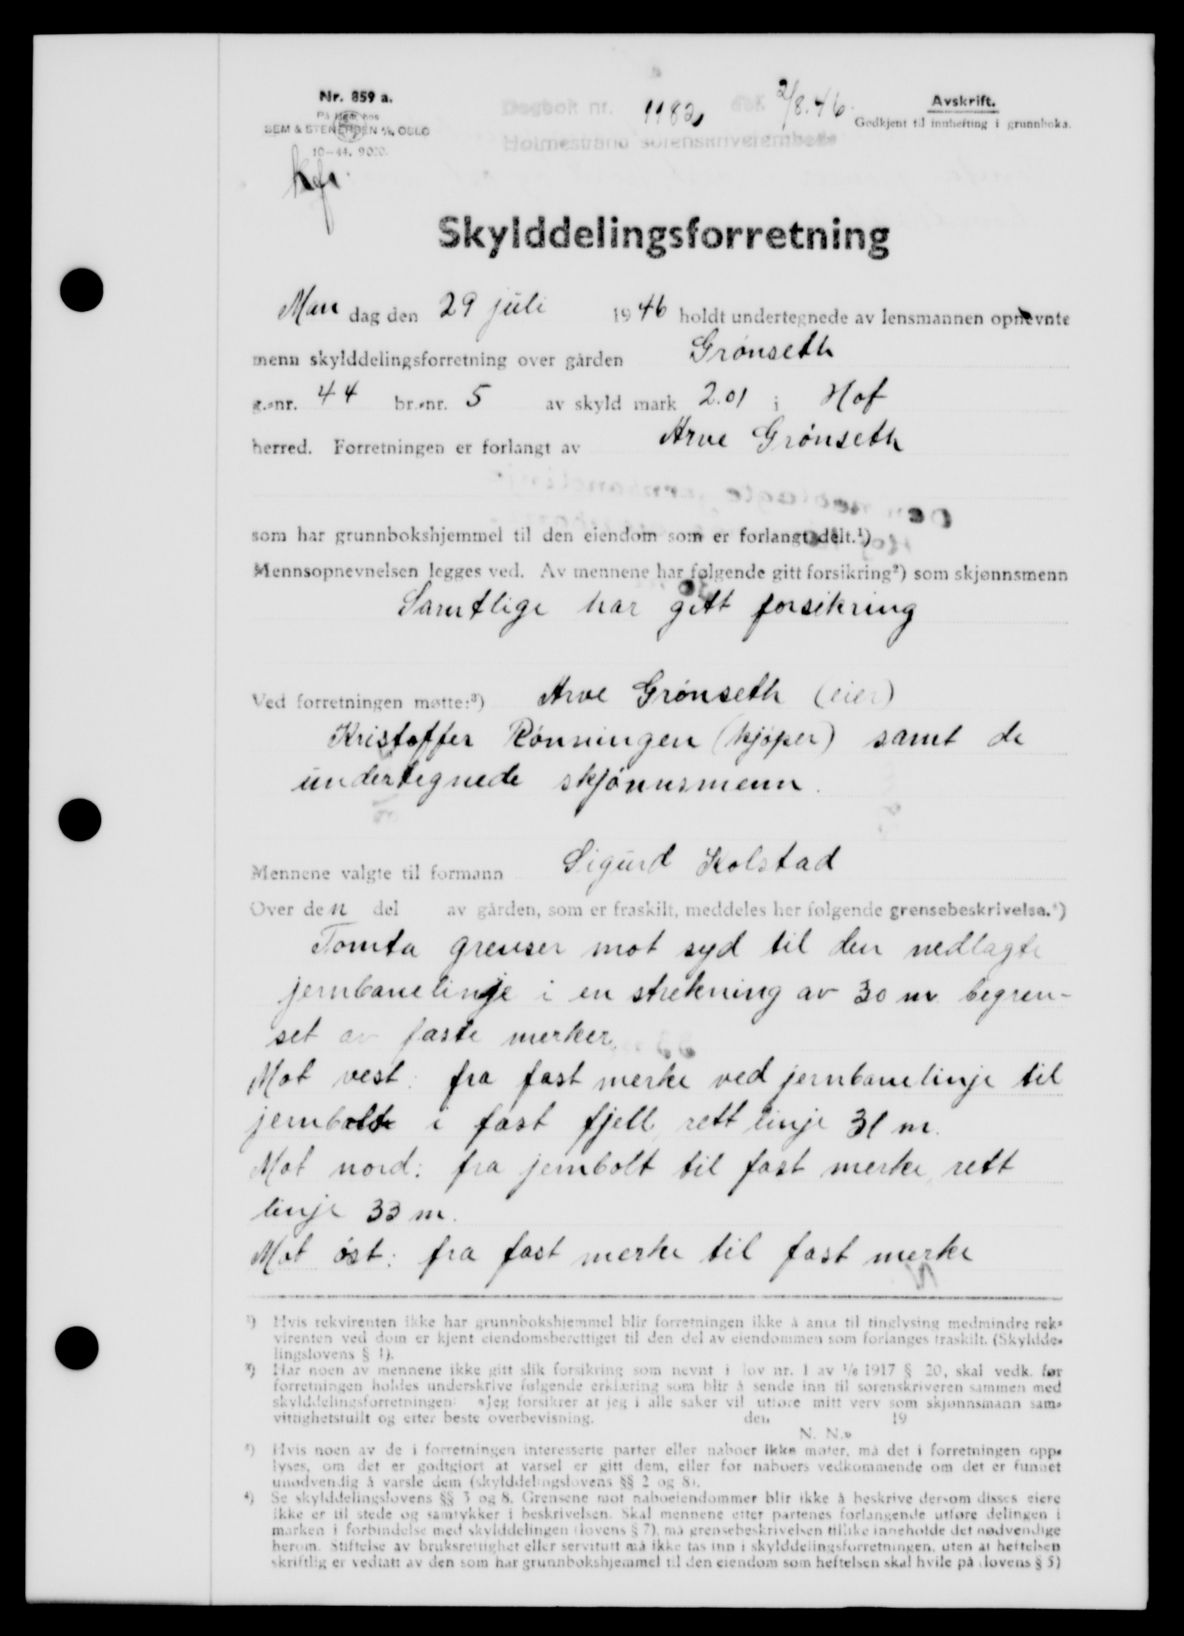 Nr. 859 a.
På lager hos
SEM & STENERSEN A/S, OSLO
10-44. 9020.
kfr.
Dagbok nr. 1182, 2/8.46.
Holmestrand sorenskriverembete
Avskrift.
Godkjent til innhefting i grunnboka.
Skylddelingsforretning
Man dag den 29 juli 1946 holdt undertegnede av lensmannen opnevnte
menn skylddelingsforretning over gården Grønseth
g.-nr. 44 br.-nr. 5 av skyld mark 2.01 i Hof
herred. Forretningen er forlangt av Arve Grønseth
som har grunnbokshjemmel til den eiendom som er forlangt delt.¹)
Mennsopnevnelsen legges ved. Av mennene har følgende gitt forsikring²) som skjønnsmenn
Samtlige har gitt forsikring
Ved forretningen møtte:³) Arve Grønseth (eier)
Kristoffer Rønningen (kjøper) samt de
undertegnede skjønnsmenn.
Mennene valgte til formann Sigurd Kolstad
Over den del av gården, som er fraskilt, meddeles her følgende grensebeskrivelse.⁴)
Tomta grenser mot syd til den nedlagte
jernbanelinje i en strekning av 30 m begren-
set av faste merker.
Mot vest: fra fast merke ved jernbanelinje til
jernbolt i fast fjell, rett linje 31 m.
Mot nord: fra jernbolt til fast merke, rett
linje 33 m.
Mot øst: fra fast merke til fast merke
¹) Hvis rekvirenten ikke har grunnbokshjemmel blir forretningen ikke å anta til tinglysing medmindre rek-
virenten ved dom er kjent eiendomsberettiget til den del av eiendommen som forlanges fraskilt. (Skyldde-
lingslovens § 1).
²) Har noen av mennene ikke gitt slik forsikring som nevnt i lov nr. 1 av 1/6 1917 § 20, skal vedk. før
forretningen holdes underskrive følgende erklæring som blir å sende inn til sorenskriveren sammen med
skylddelingsforretningen: »Jeg forsikrer at jeg i alle saker vil utføre mitt verv som skjønnsmann sam-
vittighetsfullt og etter beste overbevisning. den 19
N. N.»
³) Hvis noen av de i forretningen interesserte parter eller naboer ikke møter, må det i forretningen opp-
lyses, om det er godtgjort at varsel er gitt dem, eller for naboers vedkommende om det er funnet
unødvendig å varsle dem (skylddelingslovens §§ 2 og 8).
⁴) Se skylddelingslovens §§ 3 og 8. Grensene mot naboeiendommer blir ikke å beskrive dersom disses eiere
ikke er til stede og samtykker i beskrivelsen. Skal mennene etter partenes forlangende utføre delingen i
marken i forbindelse med skylddelingen (lovens § 7), må grensebeskrivelsen tillike inneholde det nødvendige
herom. Stiftelse av bruksrettighet eller servitutt må ikke tas inn i skylddelingsforretningen, uten at heftelsen
skriftlig er vedtatt av den som har grunnbokshjemmel til den eiendom som heftelsen skal hvile på (lovens § 5)